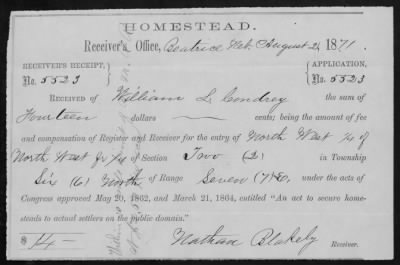 HOMESTEAD.
Receiver's Office, Beatrice Neb. August 2, 1871.
RECEIVER'S RECEIPT, No. 5523 APPLICATION, No. 5523
RECEIVED OF William L. Condrey the sum of
Fourteen dollars cents; being the amount of fee
and compensation of Register and Receiver for the entry of North West 1/4 of
North West fr 1/4 of Section Two (2) in Township
Six (6) North of Range Seven (7) E. under the acts of
Congress approved May 20, 1862, and March 21, 1864, entitled "An act to secure home-
steads to actual settlers on the public domain."
$ 14 - Nathan Blakely Receiver.